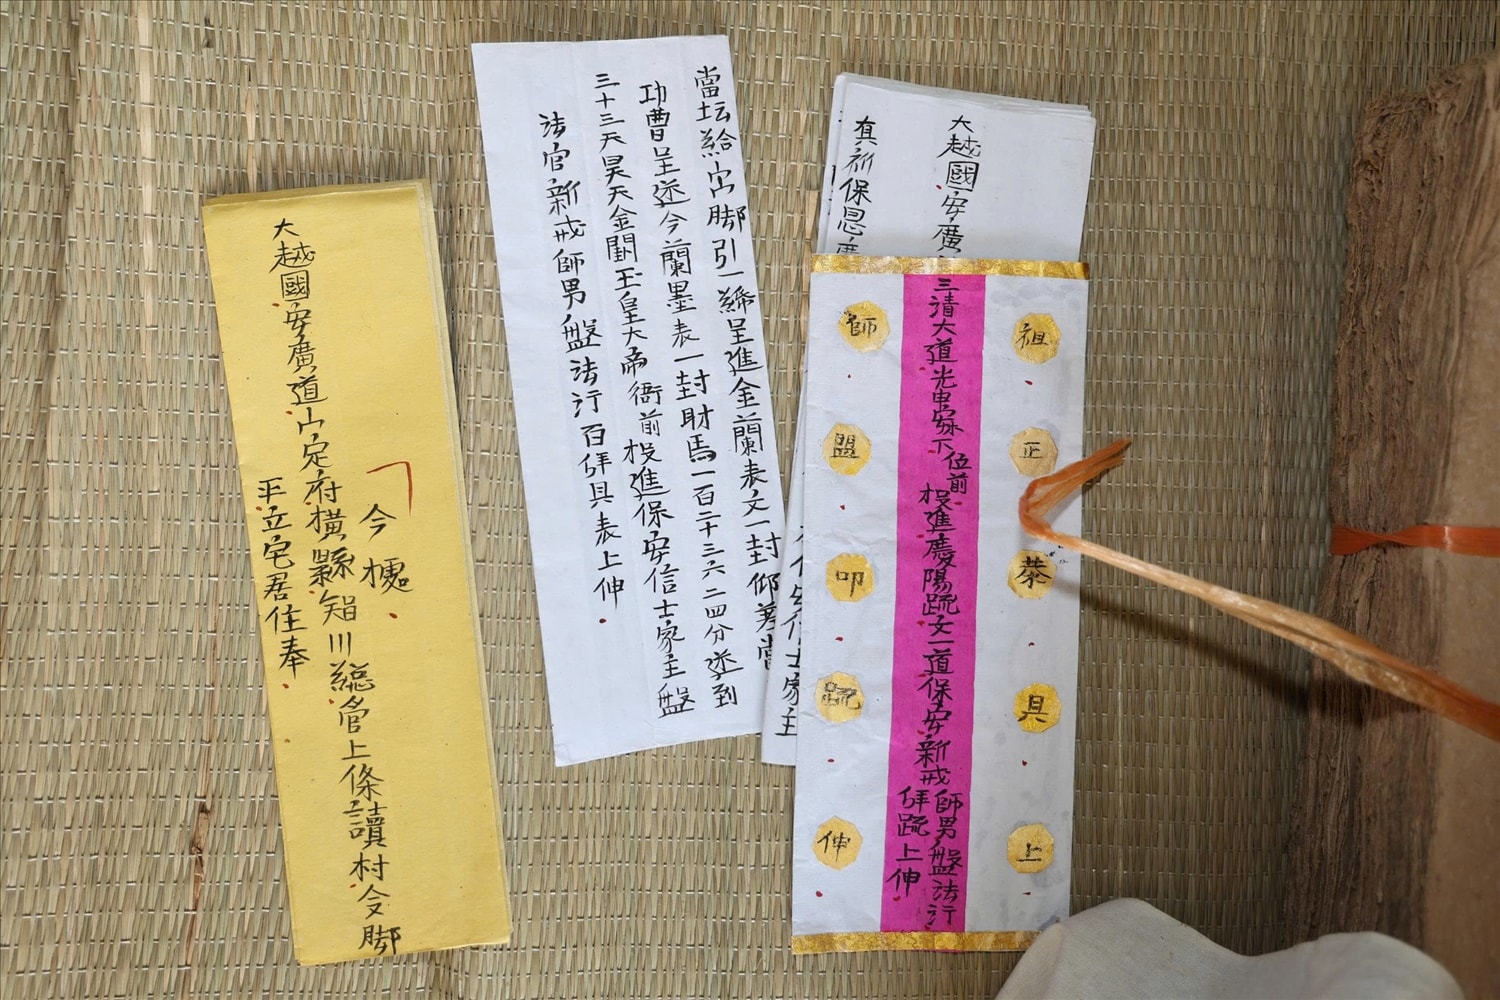 今據
大越國安廣道山定府橫縣 川總 上條讀村令脚
平立宅居住奉
當坛給出脚引一 呈進金蘭表文一封仰 當
功曹呈遞今蘭墨表一封財馬一百二十三六二四分遞到
三十三天昊天金闕玉皇大帝衙前投進保安信士家主盤
法官新戒師男盤法行百拜具表上伸
大越國安廣
真 保恩
士家主
三清大道 下位前投進慶陽疏文一道保安新戒師男盤法行拜疏上伸
祖正 具上
師盟叩 伸